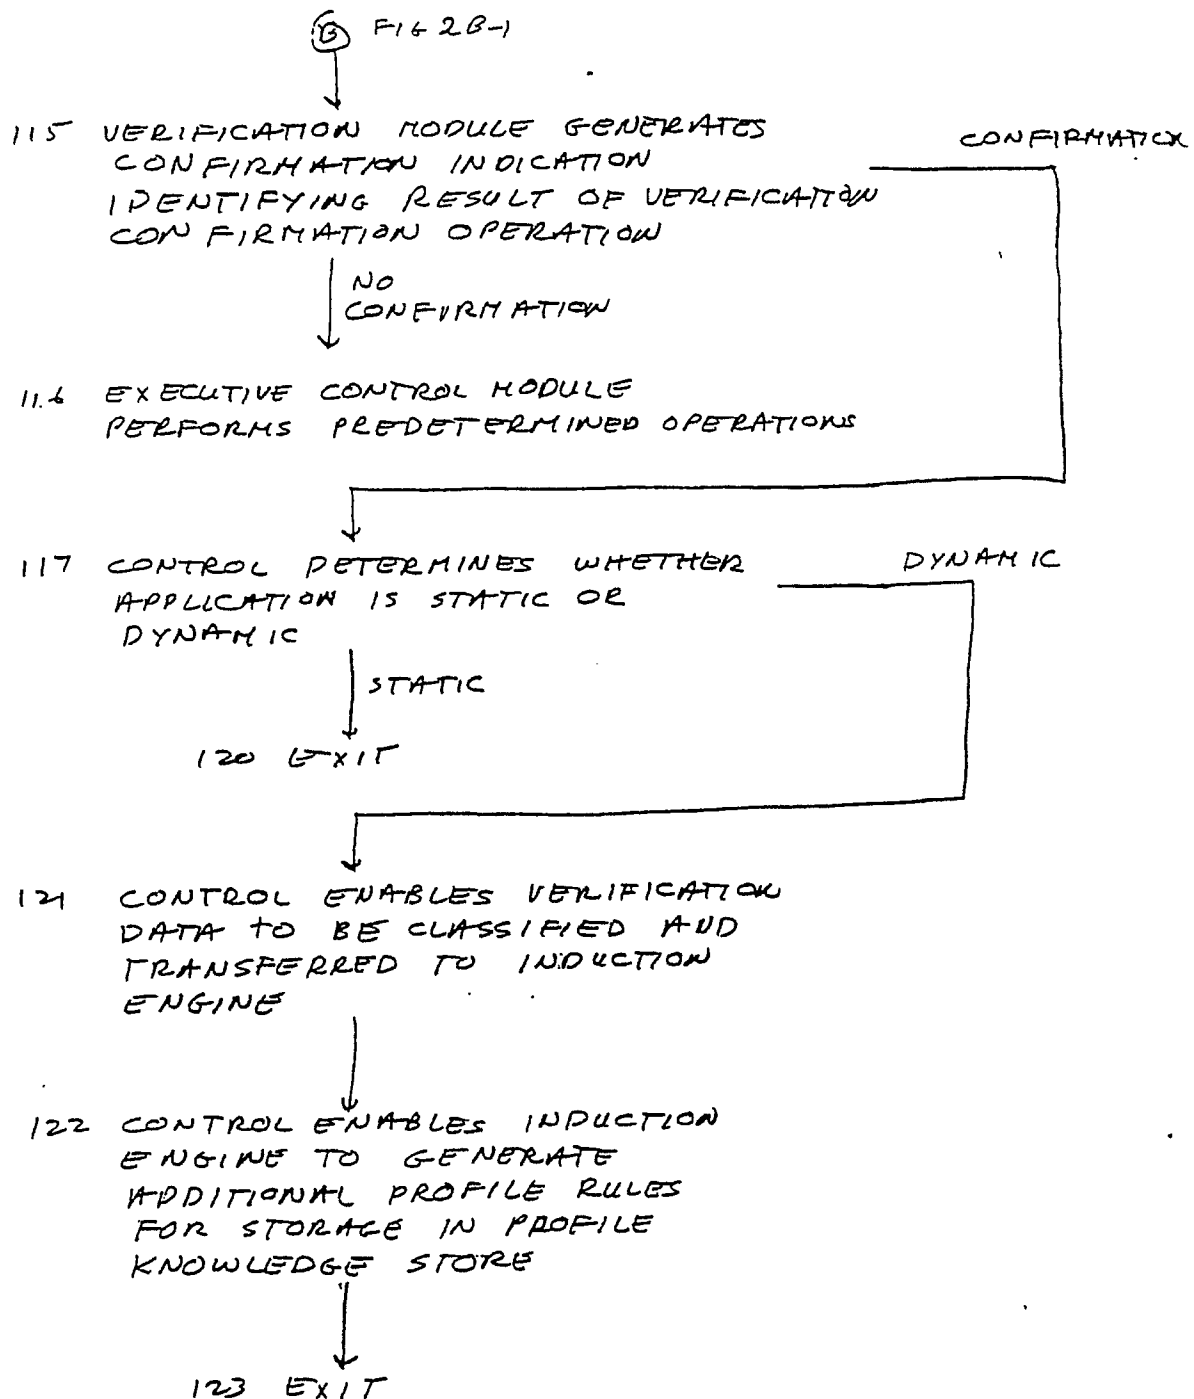 B FIG 2B-1
115 VERIFICATION MODULE GENERATES
CONFIRMATION INDICATION
IDENTIFYING RESULT OF VERIFICATION
CONFIRMATION OPERATION
CONFIRMATION
NO
CONFIRMATION
116 EXECUTIVE CONTROL MODULE
PERFORMS PREDETERMINED OPERATIONS
117 CONTROL DETERMINES WHETHER
APPLICATION IS STATIC OR
DYNAMIC
DYNAMIC
STATIC
120 EXIT
121 CONTROL ENABLES VERIFICATION
DATA TO BE CLASSIFIED AND
TRANSFERRED TO INDUCTION
ENGINE
122 CONTROL ENABLES INDUCTION
ENGINE TO GENERATE
ADDITIONAL PROFILE RULES
FOR STORAGE IN PROFILE
KNOWLEDGE STORE
123 EXIT